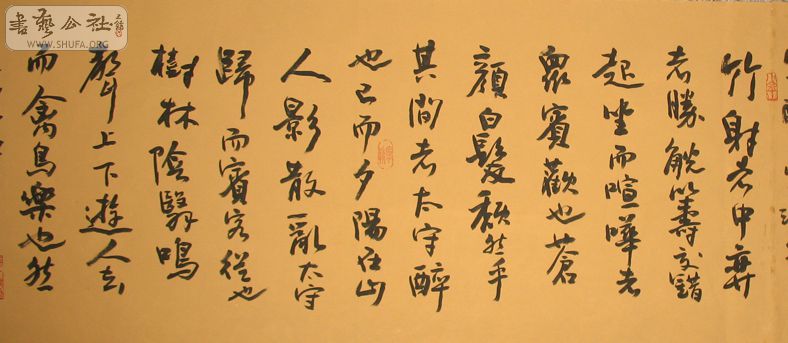 書藝公社
WWW.SHUFA.ORG
竹射者中弈
者勝觥籌交錯
起坐而喧嘩者
眾賓歡也蒼
顏白髮頹然乎
其間者太守醉
也已而夕陽在山
人影散亂太守
歸而賓客從也
樹林陰翳鳴
聲上下遊人去
而禽鳥樂也然